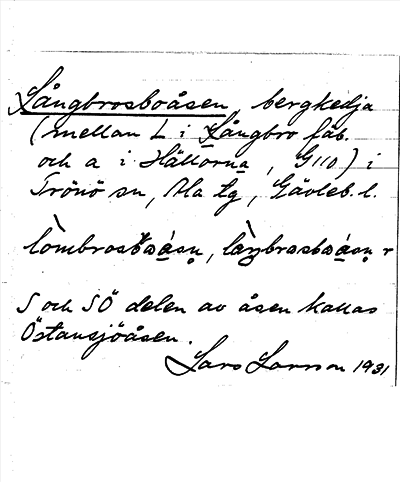 Långbrosboåsen, bergkedja
(mellan L i Långbro fäb.
och a i Hällorna, G110) i
Trönö sn, Ala tg, Gävleb. l.
S och SÖ delen av åsen kallas
Östansjöåsen.
Lars Larsson 1931